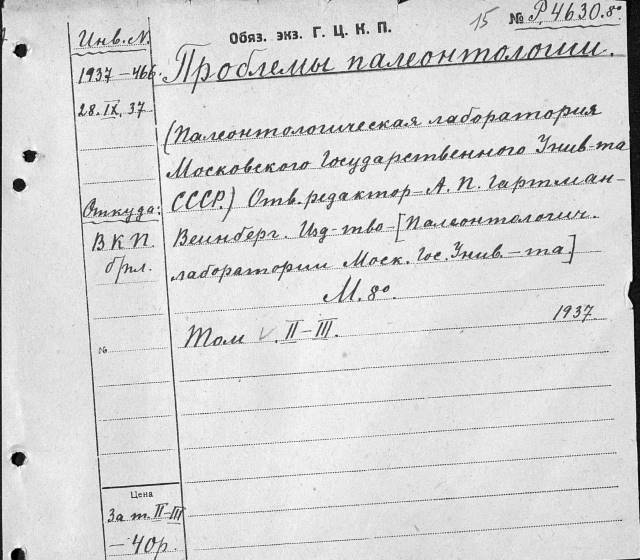 Обяз. экз. Г. Ц. К. П.
15 № Р.4630.8°
Инв. N.
1937 – 466.
28.IX.37
Откуда:
В К П.
б/пл.
№
Цена
За т. II–III
– 40р.
Проблемы палеонтологии.
(Палеонтологическая лаборатория
Московского Государственного Унив-та
СССР.) Отв. редактор – А. П. Гартман-
Веинберг. Изд-тво – [Палеонтологич.
лаборатории Моск. Гос. Унив. – та.]
М. 8°.
Том V. II – III. 1937.